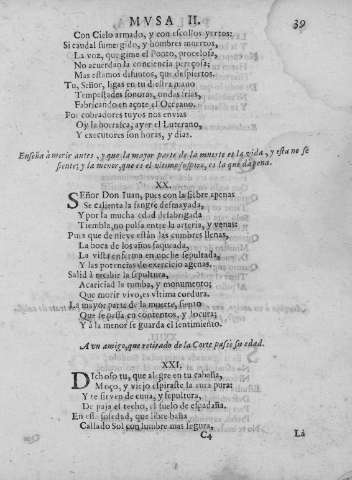 MVSA II.
39
Con Cielo armado, y con escollos yertos:
Si caudal sumergido, y hombres muertos,
La voz, que gime el Ponto, procelosa,
No acuerdan la conciencia pereçosa;
Mas estamos difuntos, que despiertos.
Tu, Señor, ligas en tu diestra mano
Tempestades sonoras, ondas frias,
Fabricando en açote el Oceano.
Por cobradores tuyos nos embias
Oy la borrasca, ayer el Luterano,
Y executores son horas, y dias.
Enseña à morir antes, y que la mayor parte de la muerte es la vida, y esta no se
siente; y la menor, que es el vltimo suspiro, es la que dà pena.
XX.
SEñor Don Iuan, pues con la fiebre apenas
Se calienta la sangre desmayada,
Y por la mucha edad desabrigada
Tiembla, no pulsa entre la arteria, y venas:
Pues que de nieve están las cumbres llenas,
La boca de los años saqueada,
La vista enferma en noche sepultada,
Y las potencias de exercicio agenas.
Salid à recibir la sepultura,
Acariciad la tumba, y monumento;
Que morir vivo, es vltima cordura.
La mayor parte de la muerte, siento
Que se passa en contentos, y locura;
Y à la menor se guarda el sentimiento.
A vn amigo, que retirado de la Corte passò su edad.
XXI.
DIchoso tu, que alegre en tu cabaña,
Moço, y viejo espiraste la aura pura;
Y te sirven de cuna, y sepultura,
De paja el techo, el suelo de espadaña.
En esta soledad, que libre baña
Callado Sol con lumbre mas segura,
C4
La